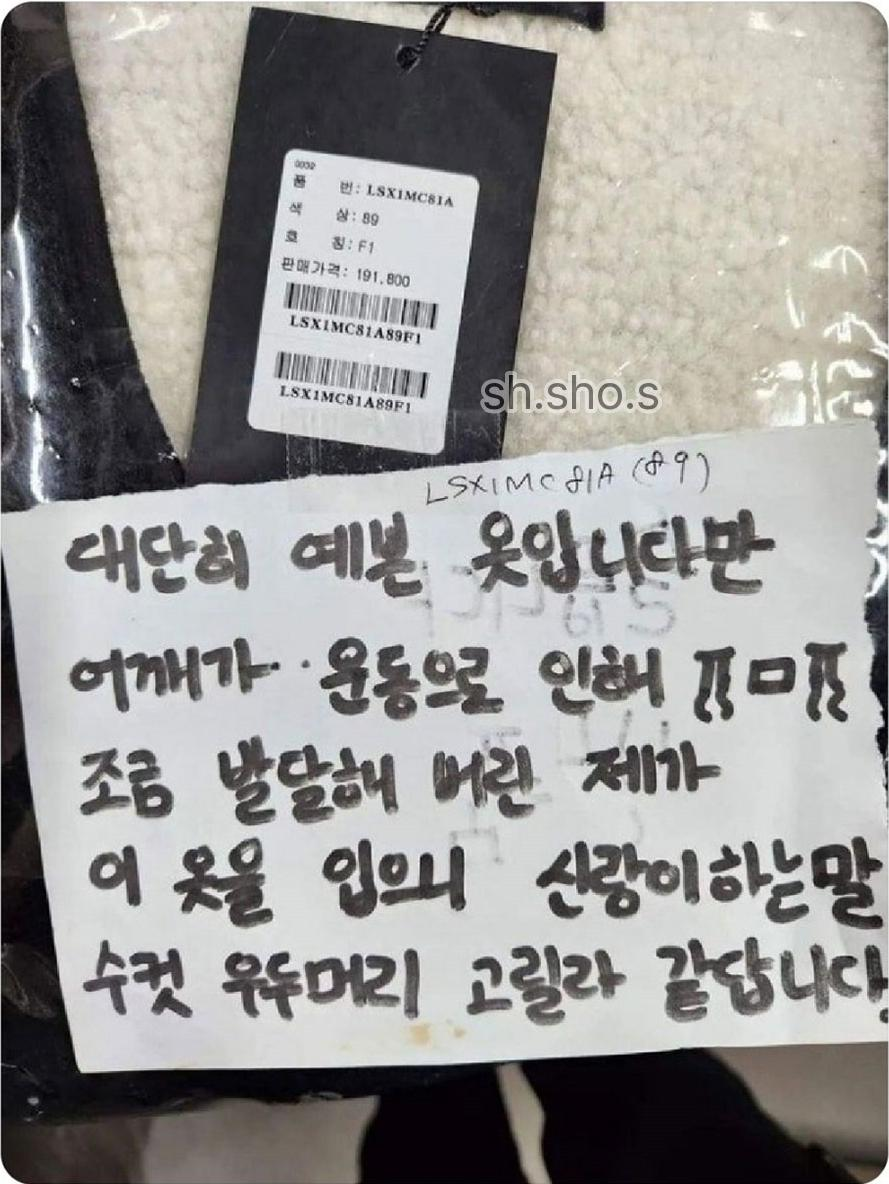 0032
품 번: LSX1MC81A
색 상: 89
호 칭: F1
판매가격: 191,800
LSX1MC81A89F1
LSX1MC81A89F1
sh.sho.s
LSX1MC81A (89)
대단히 예쁜 옷입니다만
어깨가.. 운동으로 인해 ㅠㅁㅠ
조금 발달해 버린 제가
이 옷을 입으니 신랑이 하는 말
수컷 우두머리 고릴라 같답니다.